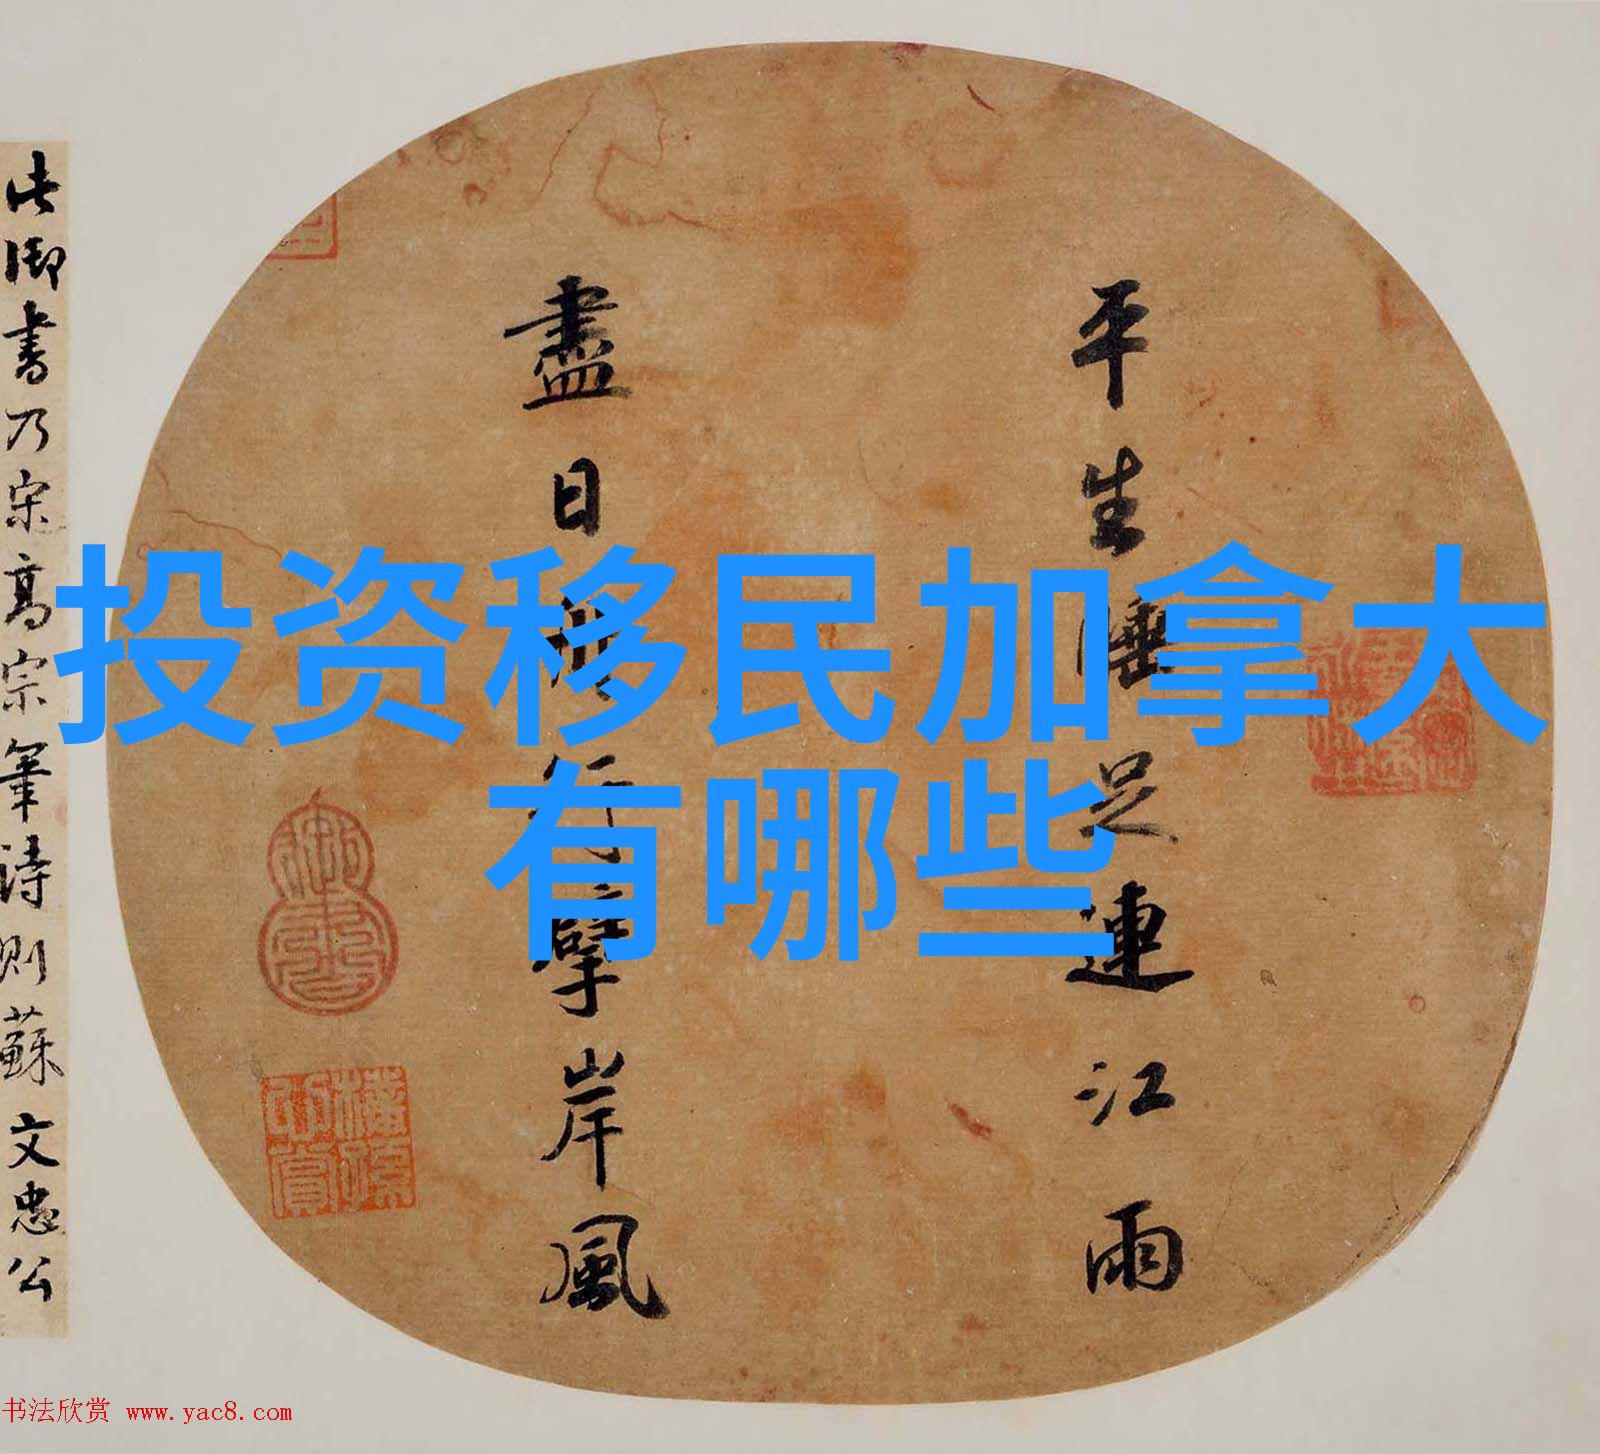 投资移民加拿大
有哪些
平生睡足連江雨
盡日舟行擘岸風
此御書乃宋高宗筆詩則蘇文忠公
书法欣赏 www.yac8.com